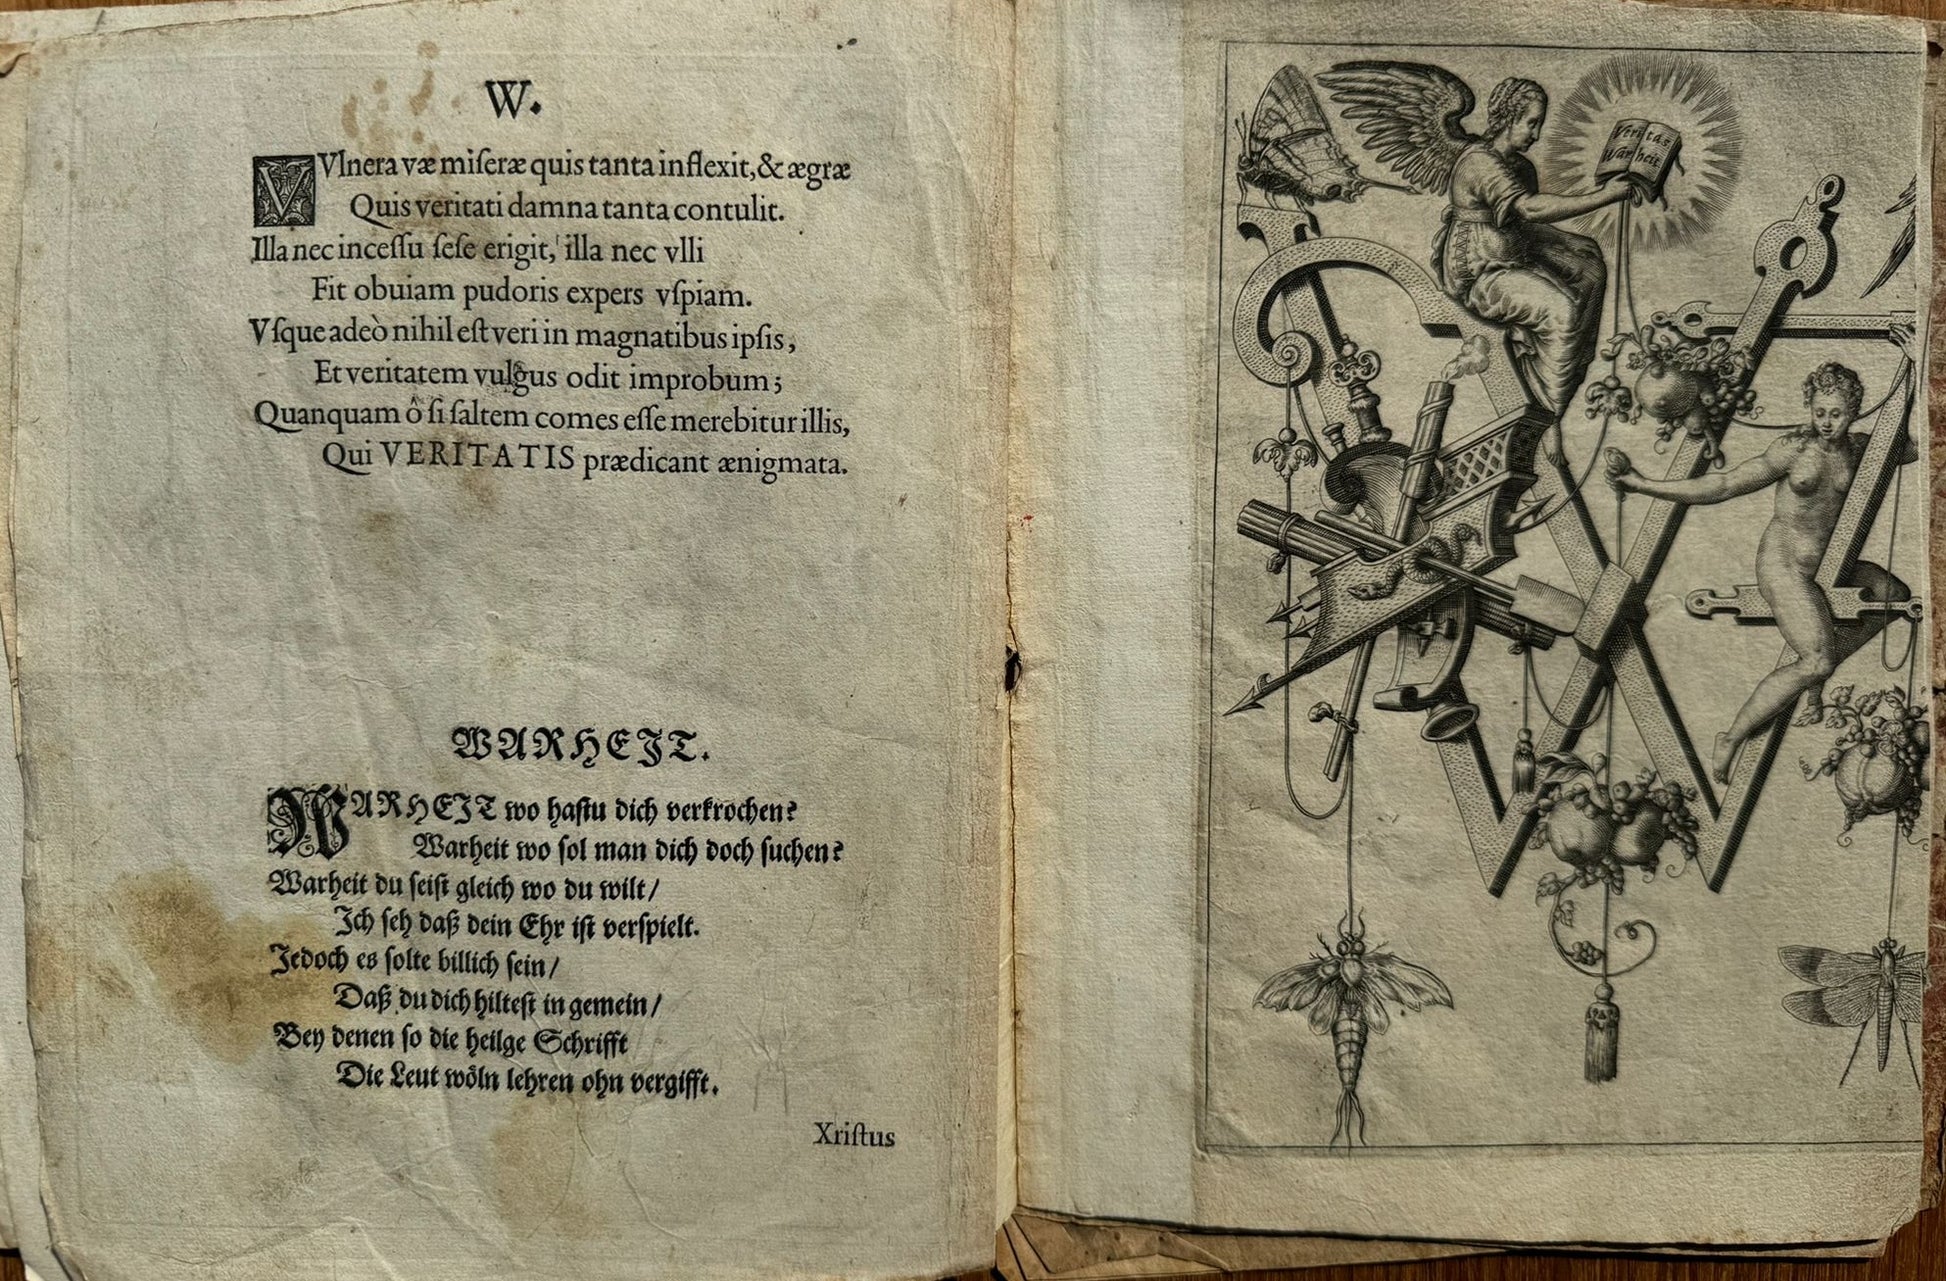 W.
VVlnera væ miſeræ quis tanta inflexit, & ægræ
Quis veritati damna tanta contulit.
Illa nec inceſſu ſeſe erigit, illa nec vlli
Fit obuiam pudoris expers vſpiam.
Vſque adeò nihil eſt veri in magnatibus ipſis,
Et veritatem vulgus odit improbum;
Quanquam ô ſi ſaltem comes eſſe merebitur illis,
Qui VERITATIS prædicant ænigmata.
WARHEIT.
WARHEIT wo haſtu dich verkrochen?
Warheit wo ſol man dich doch ſuchen?
Warheit du ſeiſt gleich wo du wilt/
Ich ſeh daß dein Ehr iſt verſpielt.
Jedoch es ſolte billich ſein/
Daß du dich hilteſt in gemein/
Bey denen ſo die heilge Schrifft
Die Leut wöln lehren ohn vergifft.
Xriſtus
Veritas
Warheit